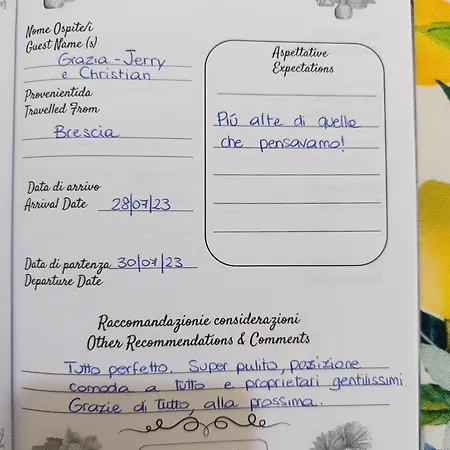 Nome Ospite/i
Guest Name (s)
Grazia - Jerry
e Christian
Provenientida
Travelled From
Brescia
Aspettative
Expectations
Più alte di quelle
che pensavamo!
Data di arrivo
Arrival Date 28/07/23
Data di partenza 30/07/23
Departure Date
Raccomandazionie considerazioni
Other Recommendations & Comments
Tutto perfetto. Super pulito, posizione
comoda a tutto e proprietari gentilissimi.
Grazie di tutto, alla prossima.